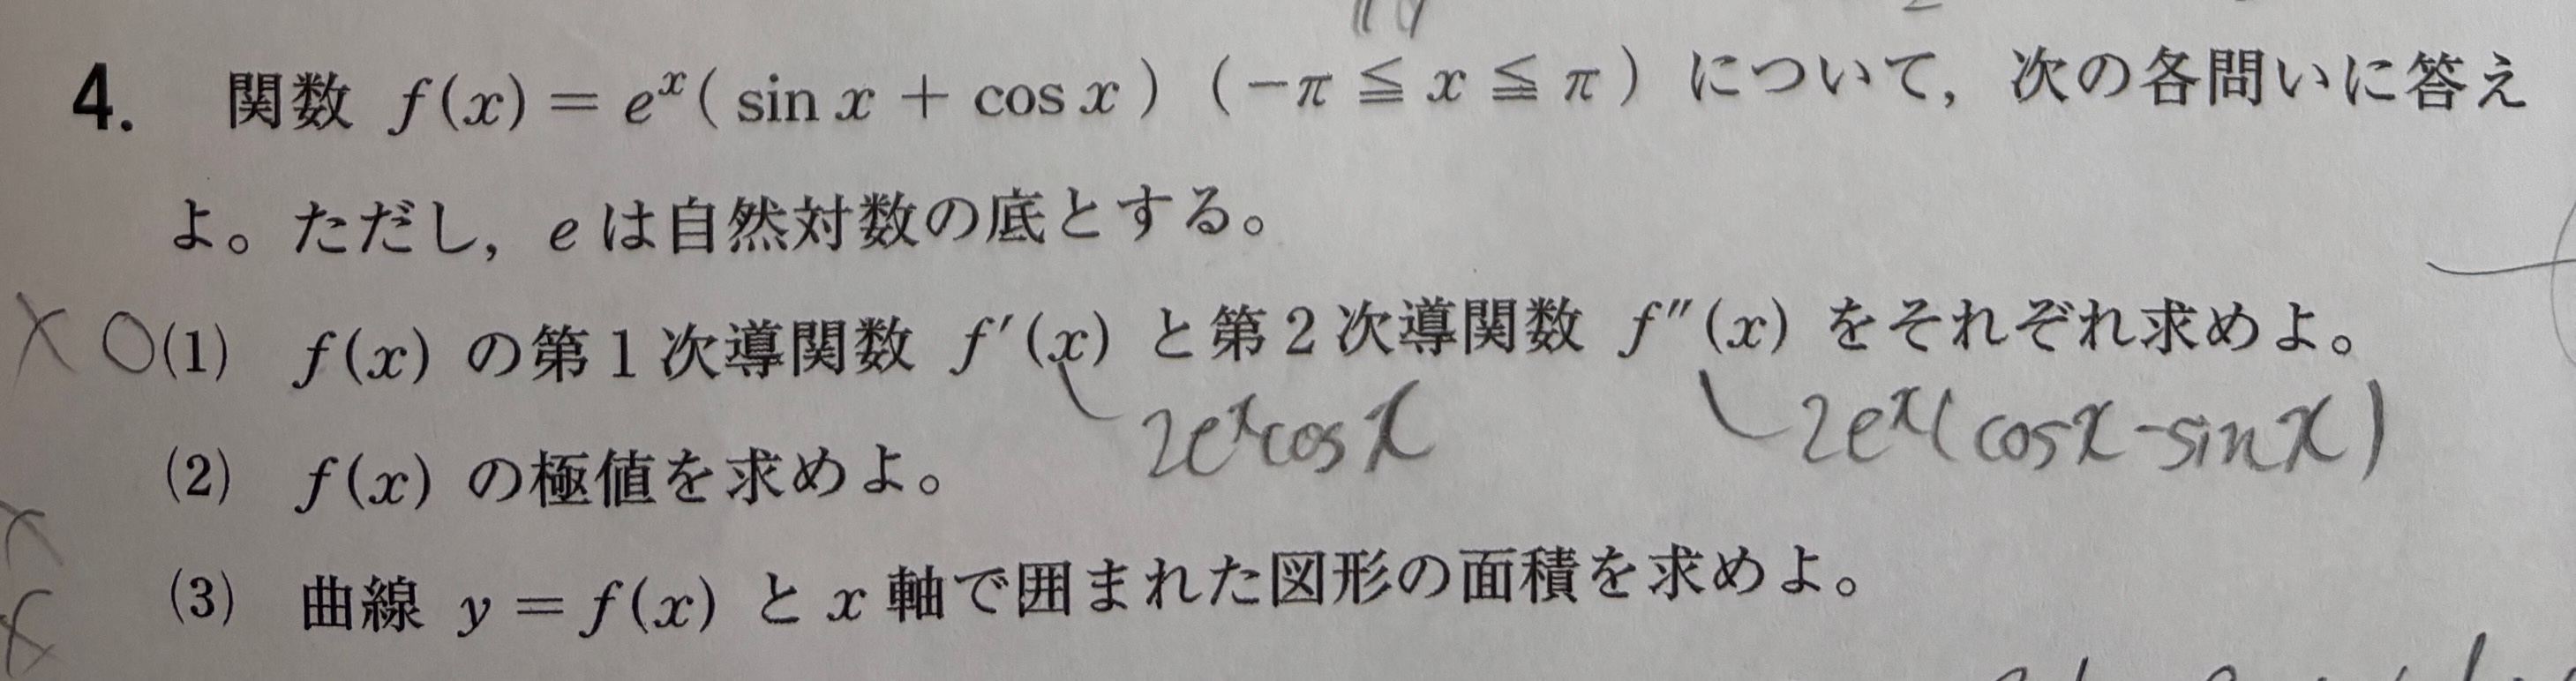 4. 関数 f(x) = e^x( sin x + cos x ) ( -π ≦ x ≦ π ) について, 次の各問いに答え
よ。ただし, e は自然対数の底とする。
× ○(1) f(x) の第1次導関数 f′(x) と第2次導関数 f″(x) をそれぞれ求めよ。
2e^x cos x 2e^x( cos x - sin x )
(2) f(x) の極値を求めよ。
(3) 曲線 y = f(x) と x 軸で囲まれた図形の面積を求めよ。